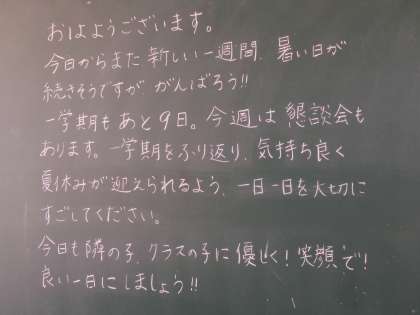 おはようございます。
今日からまた新しい一週間、暑い日が
続きそうですが がんばろう!!
一学期も あと9日。今週は 懇談会も
あります。一学期をふり返り、気持ち良く
夏休みが迎えられるよう、一日一日を大切に
すごしてください。
今日も隣の子、クラスの子に優しく!笑顔で!
良い一日にしましょう!!